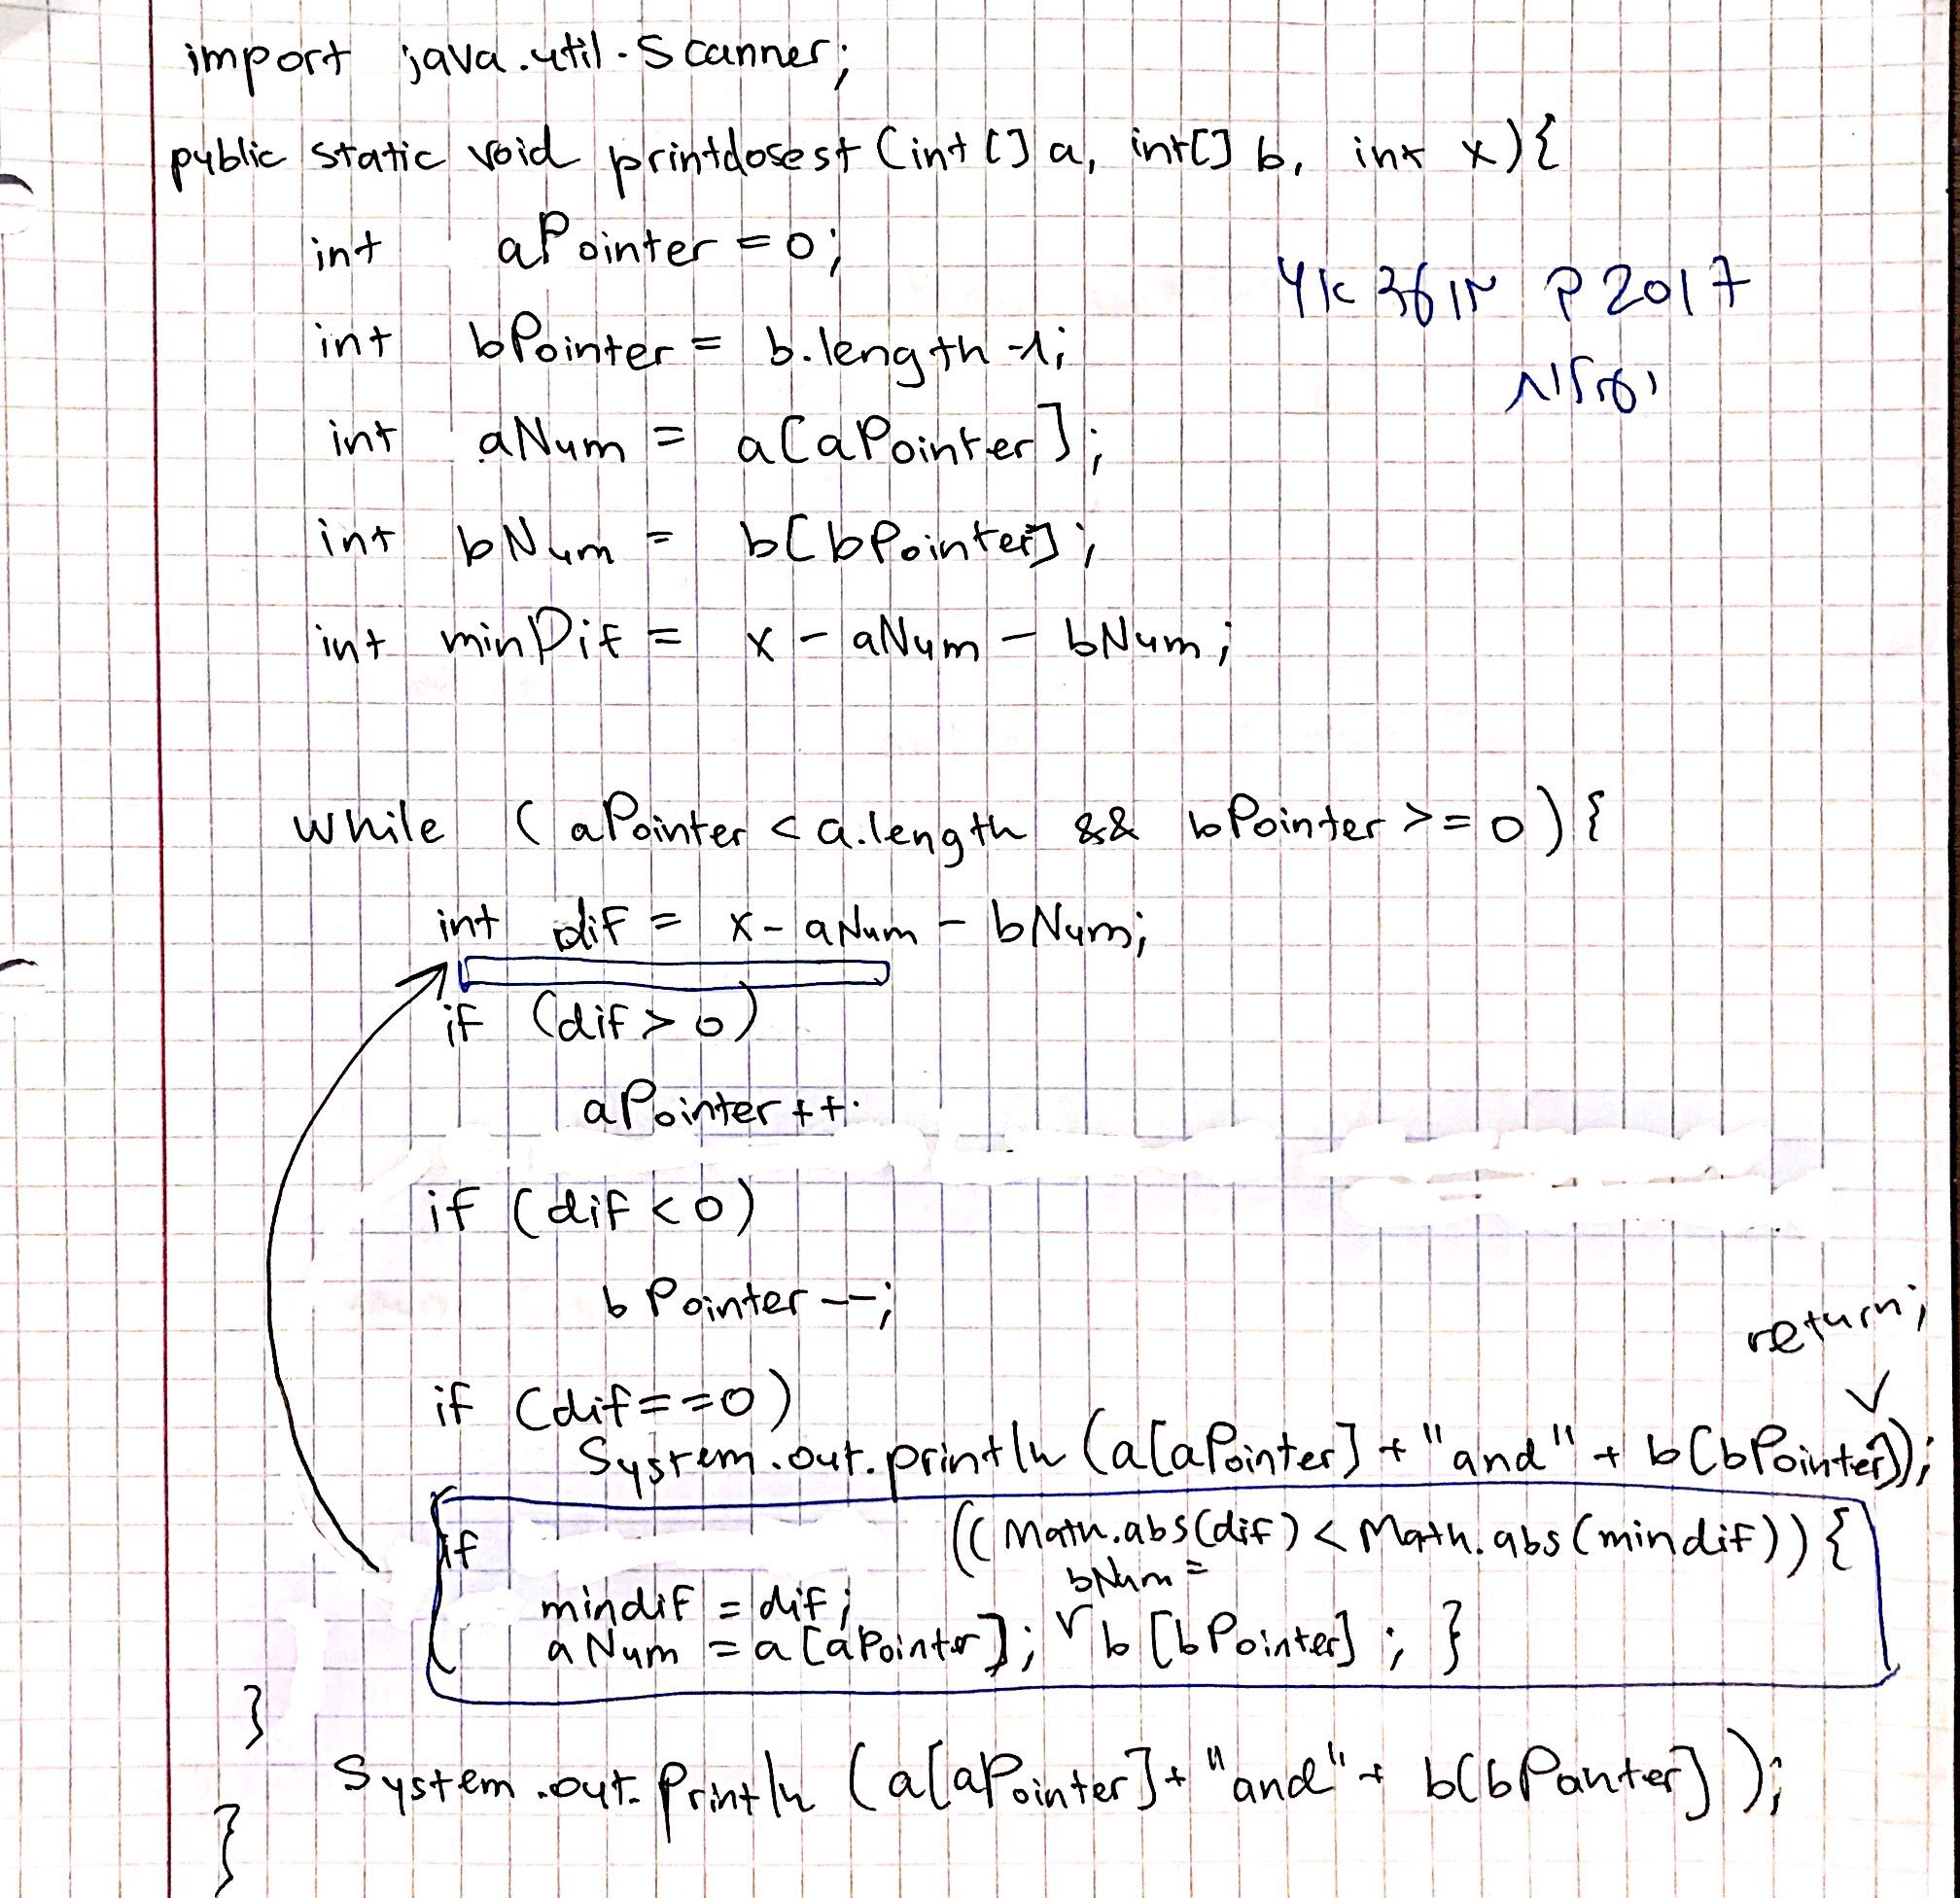 import java.util.Scanner;
public static void printclosest (int [] a, int[] b, int x){
int aPointer = 0;
int bPointer = b.length -1;
int aNum = a[aPointer];
int bNum = b[bPointer];
int minDif = x - aNum - bNum;
while ( aPointer < a.length && bPointer >= 0 ) {
int dif = x - aNum - bNum;
if (dif > 0)
aPointer ++.
if (dif < 0)
b Pointer --;
return;
if (dif==0)
System.out.println (a[aPointer] + "and" + b[bPointer]);
if ((Math.abs(dif) < Math.abs(mindif)) {
mindif = dif;
bNum =
aNum = a[aPointer]; b [bPointer] ; }
}
System.out.println (a[aPointer] + "and" + b[bPointer] );
}
2017